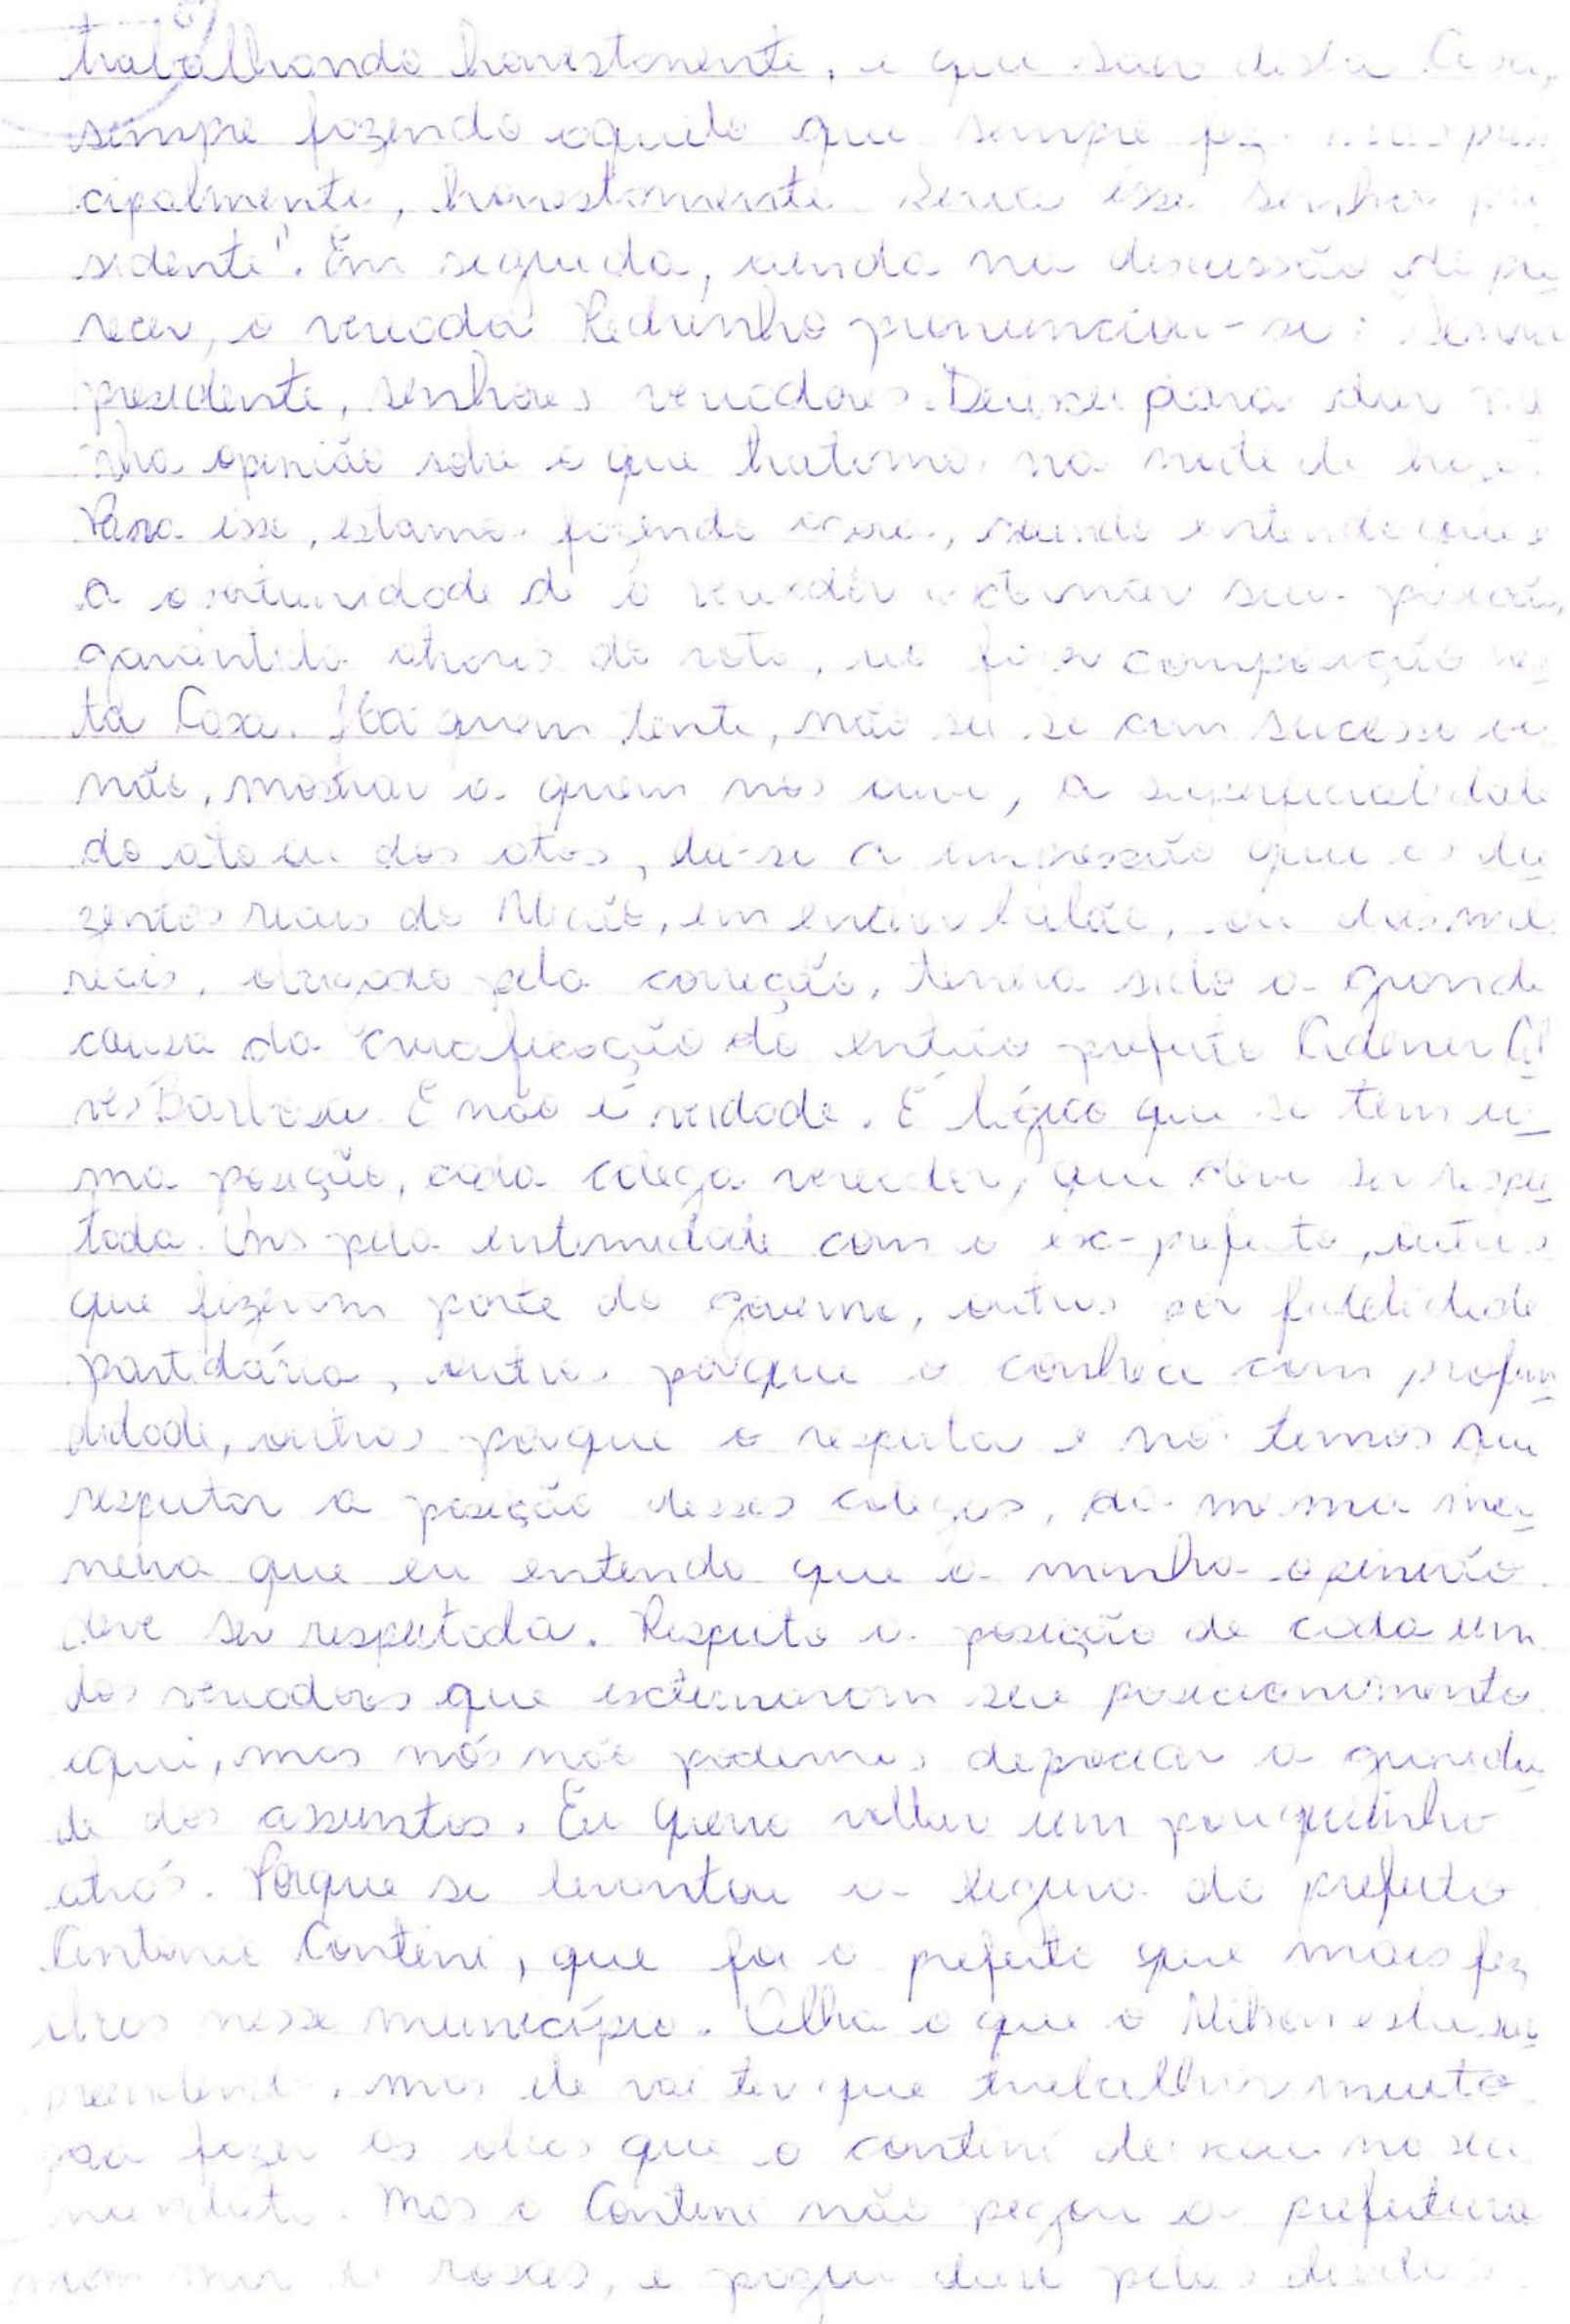 trabalhando honestamente, e que saio desta Casa,
sempre fazendo aquilo que sempre fez
cipalmente, honestamente. Seria isso senhor pre
sidente". Em seguida, ainda na discussão do pa
recer, o vereador Pedrinho pronunciou-se: Senhor
presidente, senhores vereadores. Deixei para dar mi
nha opinião sobre o que tratamos na noite de hoje.
Para isso, estamos fazendo entendo que é
a oportunidade de o vereador externar sua posição,
garantida através do voto, que fez a composição nes
ta Casa. Há quem tente, não sei se com sucesso ou
não, mostrar a quem nos ouve, a superficialidade
do ato ou dos atos, dá-se a impressão que os du
zentos reais do em ou dois mil
reais, pela correção, tenha sido a grande
causa da crucificação do então prefeito Al
ves Barbosa. E não é verdade. É lógico que se tem u_
ma posição, cada colega vereador, que deve ser respei
tada. Uns pela intimidade com o ex-prefeito, outros
que fizeram parte do governo, outros por fidelidade
partidária, outros porque o conhece com profun
didade, outros porque o respeita e nós temos que
respeitar a posição desses colegas, da mesma ma_
neira que eu entendo que a minha opinião
deve ser respeitada. Respeito a posição de cada um
dos vereadores que externaram seu posicionamento
aqui, mas nós não podemos depreciar a gravida
de dos assuntos. Eu quero voltar um pouquinho
atrás. Porque se levantou a figura do prefeito
Antonio Contini, que foi o prefeito que mais fez
obras nesse município. Olha o que o Nilson está sur
preendendo, mas ele vai ter que trabalhar muito
para fazer as obras que o Contini deixou no seu
mandato. Mas o Contini não pegou a prefeitura
num mar de rosas, e pegou